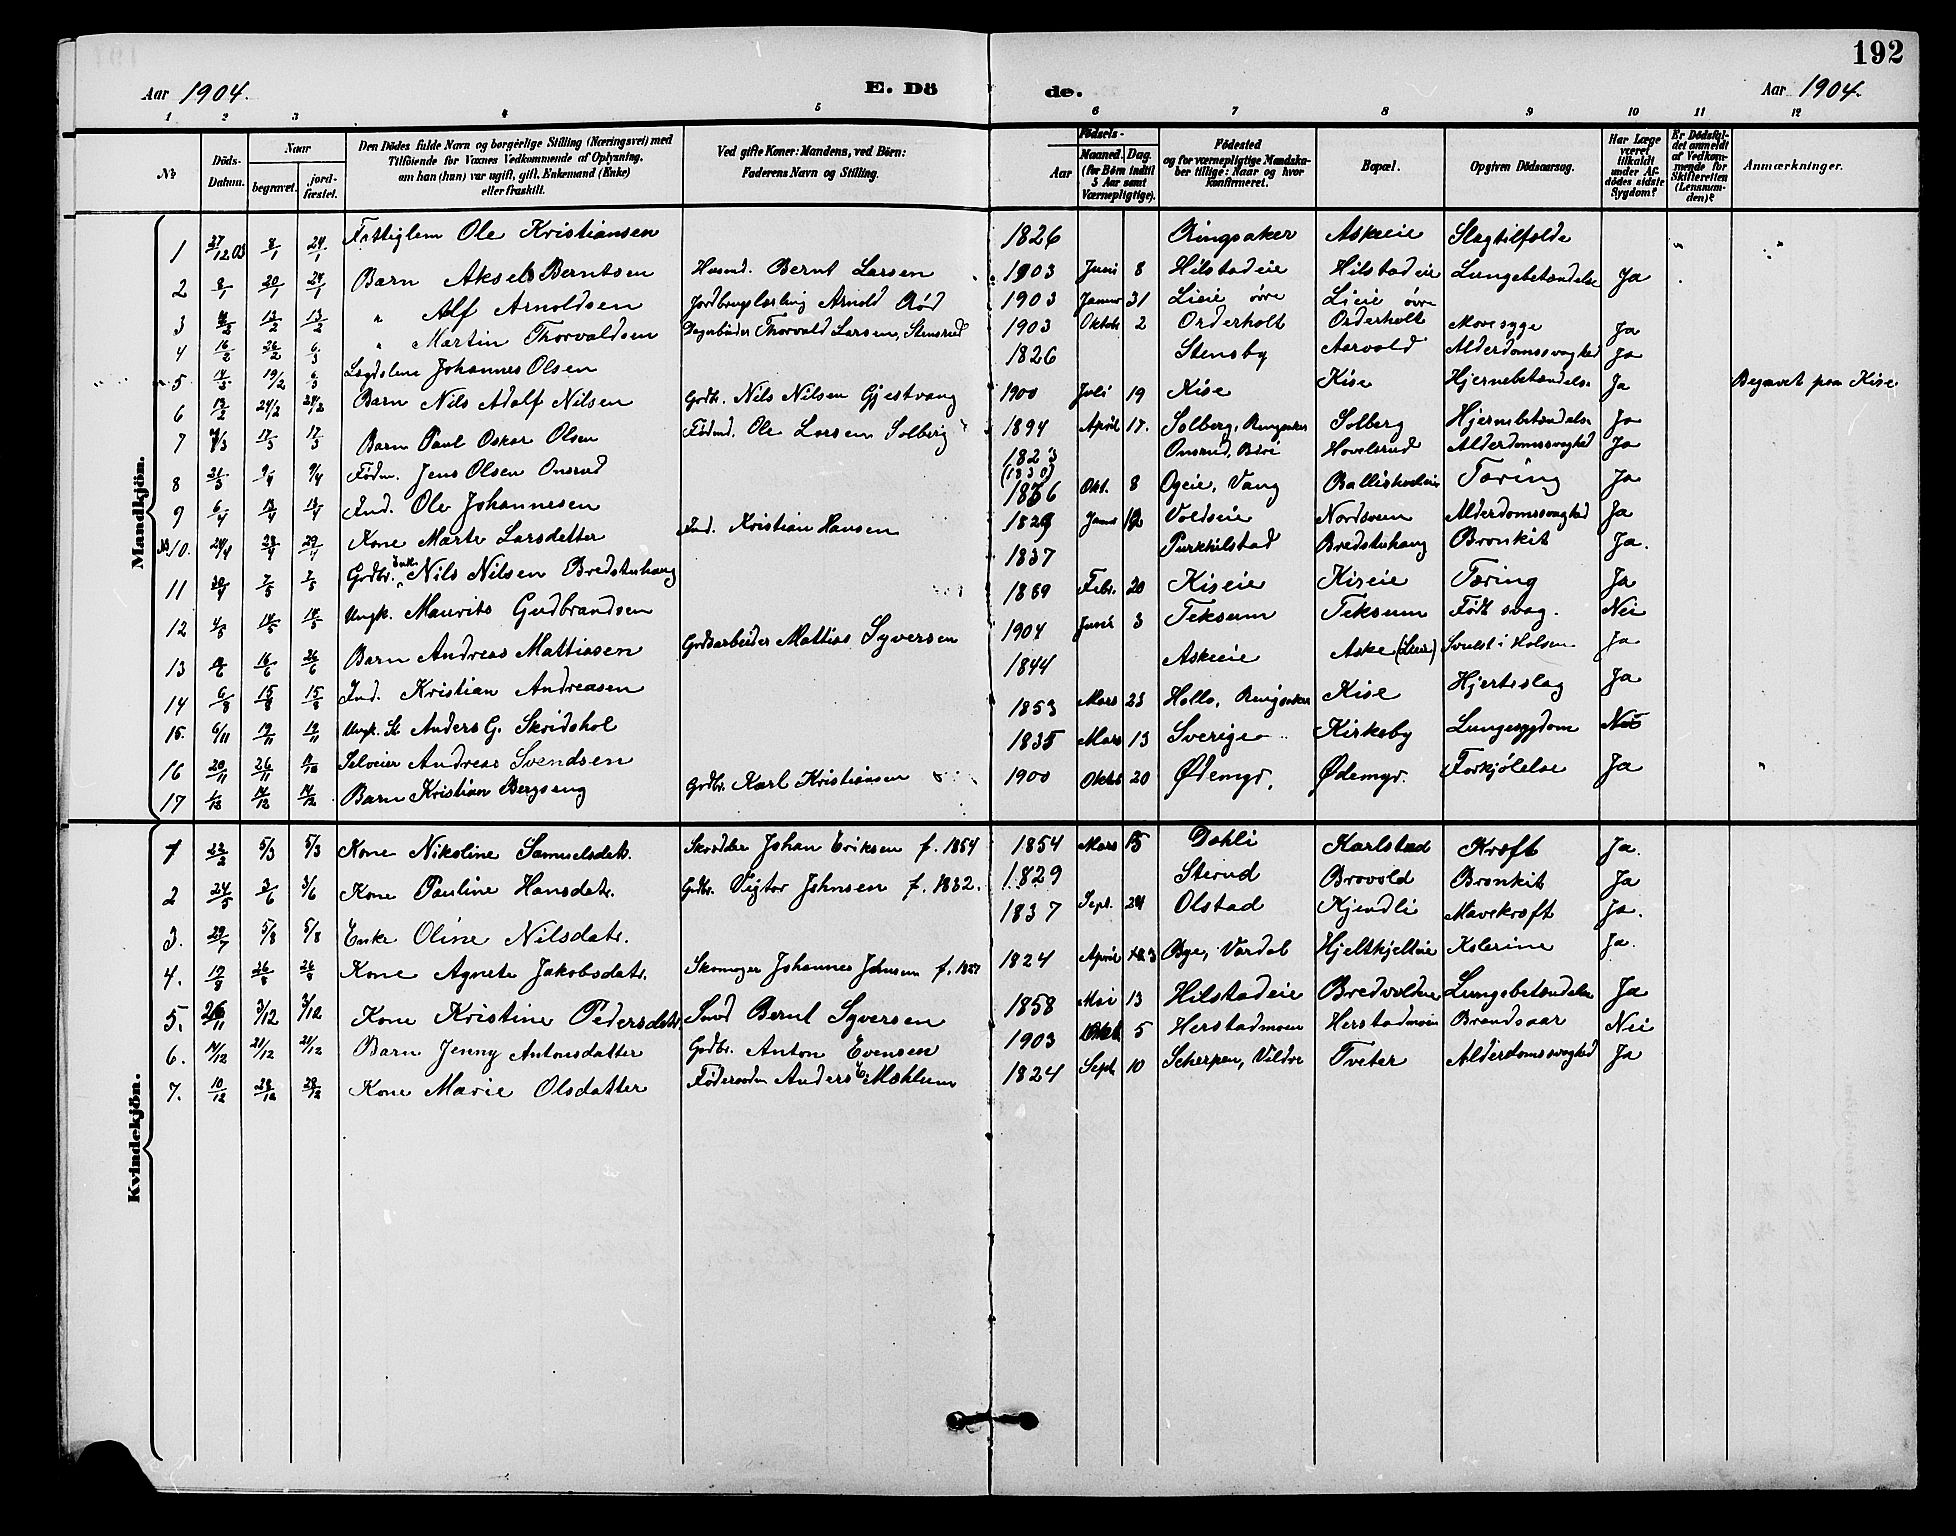 192
Aar 1904. E. Dö de. Aar 1904.
1 2 3 4 5 6 7 8 9 10 11 12
№ Döds-Datum. Naar begravet. jordfæstet. Den Dödes fulde Navn og borgerlige Stilling (Næringsvei) med Tilföiende for Voxnes Vedkommende af Oplysning, om han (hun) var ugift, gift, Enkemand (Enke) eller fraskilt. Ved gifte Koner: Mandens, ved Börn: Faderens Navn og Stilling. Födsels- Aar Maaned. Dag (for Börn indtil 5 Aar samt Værnepligtige). Födested og for værnepligtige Mandskaber tillige: Naar og hvor konfirmeret. Bopæl. Opgiven Dödsaarsag. Har Læge været tilkaldt under Afdödes sidste Sygdom? Er Dödsfaldet anmeldt af Vedkommende for Skifteretten (Lensmanden)? Anmærkninger.
Mandkjön.
1 27/12 03 8/1 24/1 Fattiglem Ole Kristiansen 1826 Ringsaker Askeie Slagtilfælde
2 8/1 20/1 24/1 Barn Aksel Berntsen Husmd. Bernt Larsen 1903 Juni 8 Hilstadeie Hilstadeie Lungebetændelse Ja
3 13/2 13/2 " Alf Arnoldsen Jordbrugslærling Arnold Rød 1903 Januar 31 Lieie øvre Lieie øvre
4 16/2 26/2 6/3 " Martin Thorvaldsen Thorvald Larsen, Stensrud 1903 Oktob 2 Orderholt Orderholt Mavesyge Ja
5 14/3 19/2 6/3 Lægdslem Johannes Olsen 1826 Stensby Aarvold Alderdomssvaghed Ja
6 13/2 24/2 24/2 Barn Nils Adolf Nilsen Gdbr. Nils Nilsen Gjestvang 1900 Juli 19 Kise Kise Hjernebetændelse Ja Begravet paa Kise
7 17/3 17/3 Barn Paul Oskar Olsen Fødmd. Ole Larsen Solberg 1894 April 17. Solberg, Ringsaker Solberg Hjernebetændelse Ja
8 21/3 9/4 9/4 Fødm. Jens Olsen Onsrud 1823 Onsrud, Hovelsrud Alderdomssvaghed Ja
9 6/4 13/4 13/4 Ind. Ole Johannesen (1830) 1836 Okt. 8 Ogeie, Vang Tæring Ja
10. 24/4 28/4 29/4 Kone Marte Larsdatter Ind. Kristian Hansen 1829 Januar Voldseie Nordsveen Alderdomssvaghed Ja
11 30/4 7/5 7/5 Gdbr. Enk. Nils Nilsen Bredstuhaug 1837 Purkhilstad Bredstuhaug Bronkit Ja.
12 4/5 14/5 14/5 Ungk. Maurits Gudbrandsen 1869 Febr. 20 Kiseie Kiseie Tæring Ja
13 16/6 26/6 Barn Andreas Mattiasen Gdsarbeider Mattias Syversen 1904 Juni 3 Teksum Teksum Født svag. Nei
14 6/8 15/8 15/8 Ind. Kristian Andreasen 1844 Askeie Aske (Leie) Svulst i Halsen Ja
15. 6/11 12/11 12/11 Ungk. Anders G. Skridshol 1853 Mars 23 Hollo, Ringsaker Kise Hjerteslag Ja
16 20/11 26/11 Selveier Andreas Svendsen 1835 Mars 13 Sverige Kirkeby Lungesygdom Nei
17 1/12 14/12 14/12 Barn Kristian Bergseng Gdbr. Karl Kristiansen 1900 Oktob 20 Ødemyr. Ødemyr. Forkjølelse Ja
Kvindekjön.
1 23/2 5/3 5/3 Kone Nikoline Samuelsdatr. Skrædder Johan Eriksen f. 1854 1854 Mars 15 Dahli Karlstad Kræft Ja.
2 24/5 3/6 3/6 Kone Pauline Hansdatr. Gdbr. Vigtor Johnsen f. 1832. 1829 Sterud Brovold Bronkit Ja
3. 29/7 5/8 5/8 Enke Oline Nilsdatr. 1837 Sept. 24 Olstad Kjendli Mavekræft Ja.
4. 17/8 26/8 26/8 Kone Agnete Jakobsdatr. Skomager Johannes Johnsen f. 1827 1824 April Bye, Vardal Kolerine Ja.
5. 26/11 3/12 3/12 Kone Kristine Pedersdatr Smd Bernt Syversen 1858 Mai 13 Hilstadeie Bredvoldeie Lungebetændelse Ja
6. 14/12 21/12 21/12 Barn Jenny Antonsdatter Gdbr. Anton Evensen 1903 Okt 5 Herstadmoen Herstadmoen Brandsaar Nei
7. 10/12 28/12 28/12 Kone Marie Olsdatter Føderaadm Anders E. Mæhlum 1824 Sept 10 Skarpen, Veldre Tveter Alderdomssvaghed Ja